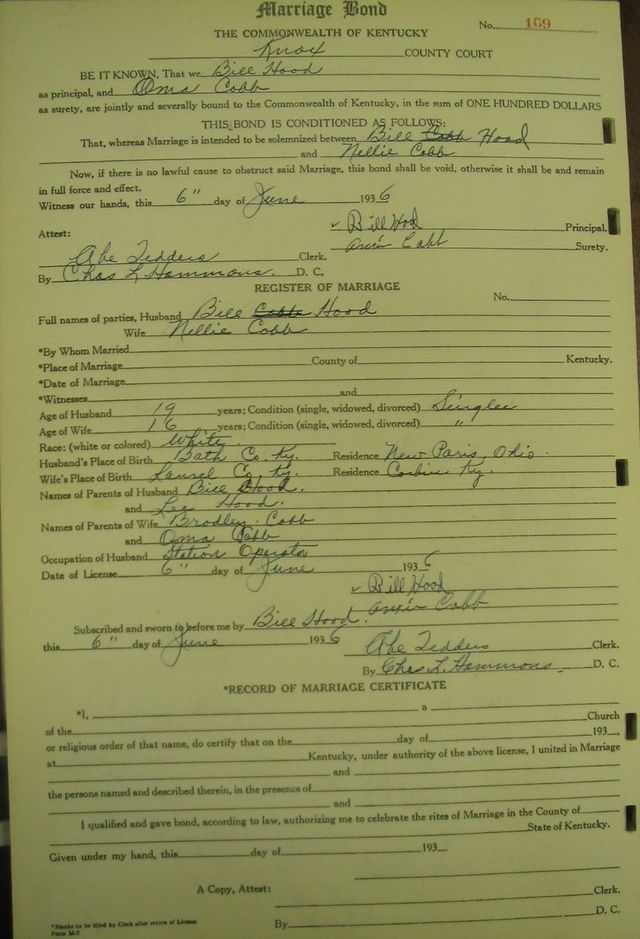 Marriage Bond
THE COMMONWEALTH OF KENTUCKY
No. 169
Knox COUNTY COURT
BE IT KNOWN, That we Bill Hood
as principal, and Oma Cobb
as surety, are jointly and severally bound to the Commonwealth of Kentucky, in the sum of ONE HUNDRED DOLLARS
THIS BOND IS CONDITIONED AS FOLLOWS:
That, whereas Marriage is intended to be solemnized between Bill Cobb Hood
and Nellie Cobb
Now, if there is no lawful cause to obstruct said Marriage, this bond shall be void, otherwise it shall be and remain
in full force and effect.
Witness our hands, this 6" day of June 1936
Bill Hood Principal.
Attest: Cobb Surety.
Abe Tedders Clerk.
By Chas L Hammons. D. C.
REGISTER OF MARRIAGE
No.
Full names of parties, Husband Bill Cobb Hood
Wife Nellie Cobb
*By Whom Married
*Place of Marriage County of Kentucky.
*Date of Marriage
*Witnesses and
Age of Husband 19 years; Condition (single, widowed, divorced) Single
Age of Wife 16 years; Condition (single, widowed, divorced) "
Race: (white or colored) White.
Husband's Place of Birth Bath Co. Ky. Residence New Paris, Ohio.
Wife's Place of Birth Laurel Co. Ky. Residence Corbin Ky.
Names of Parents of Husband Bill Hood.
and Lee Hood.
Names of Parents of Wife Bradley Cobb
and Oma Cobb
Occupation of Husband Station Operator
Date of License 6" day of June 1936
Bill Hood
Cobb
Subscribed and sworn to before me by Bill Hood.
this 6" day of June 1936
Abe Tedders Clerk.
By Chas L. Hammons. D. C.
*RECORD OF MARRIAGE CERTIFICATE
*I, a
of the Church
or religious order of that name, do certify that on the day of 193 ,
at Kentucky, under authority of the above license, I united in Marriage
and
the persons named and described therein, in the presence of
and
I qualified and gave bond, according to law, authorizing me to celebrate the rites of Marriage in the County of
State of Kentucky.
Given under my hand, this day of 193
A Copy, Attest: Clerk.
By D. C.
*Blanks to be filled by Clerk after return of License
Form M-7